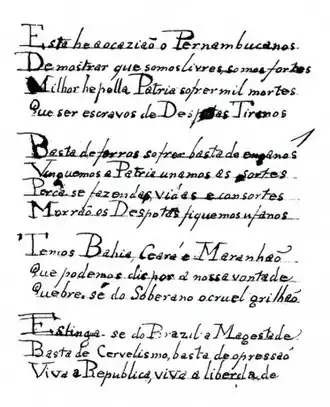 Esta he a ocazião o Pernambucanos
De mostrar que somos livres, somos fortes
Milhor he pella Patria sofrer mil mortes
Que ser escravos de Despotas Tirenos
Basta de ferros sofrer basta de enganos
Vinguemos a Patria unamos as sortes
Percã se fazendas, vidas e consortes
Morrão os Despotas fiquemos ufanos
Temos Bahia, Ceará e Maranhaõ
Que podemos dispor á nossa vontade
Quebre. se do Soberano o cruel grilhaõ
Estinga se do Brazil a Magestade
Basta de Cervelismo, basta de opressaõ
Viva a Republica, viva a liberda, de